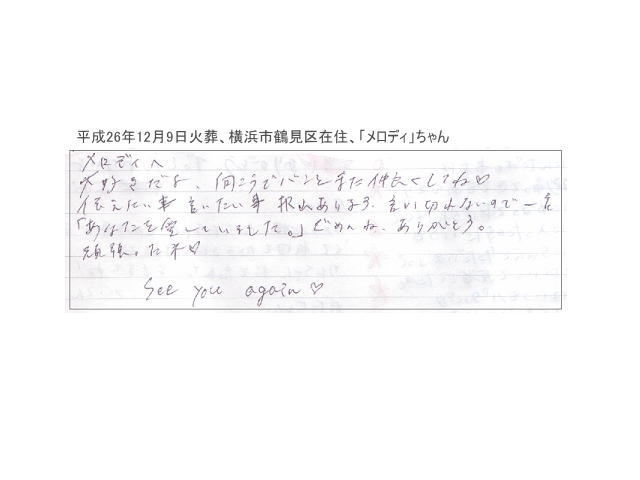 平成26年12月9日火葬、横浜市鶴見区在住、「メロディ」ちゃん
メロディへ
大好きだよ、向こうでパンとまた仲良くしてね♡
伝えたい事 言いたい事 沢山あります、言い切れないので一言
「あなたを愛していました。」ごめんね、ありがとう。
頑張ったネ♡
See you again♡